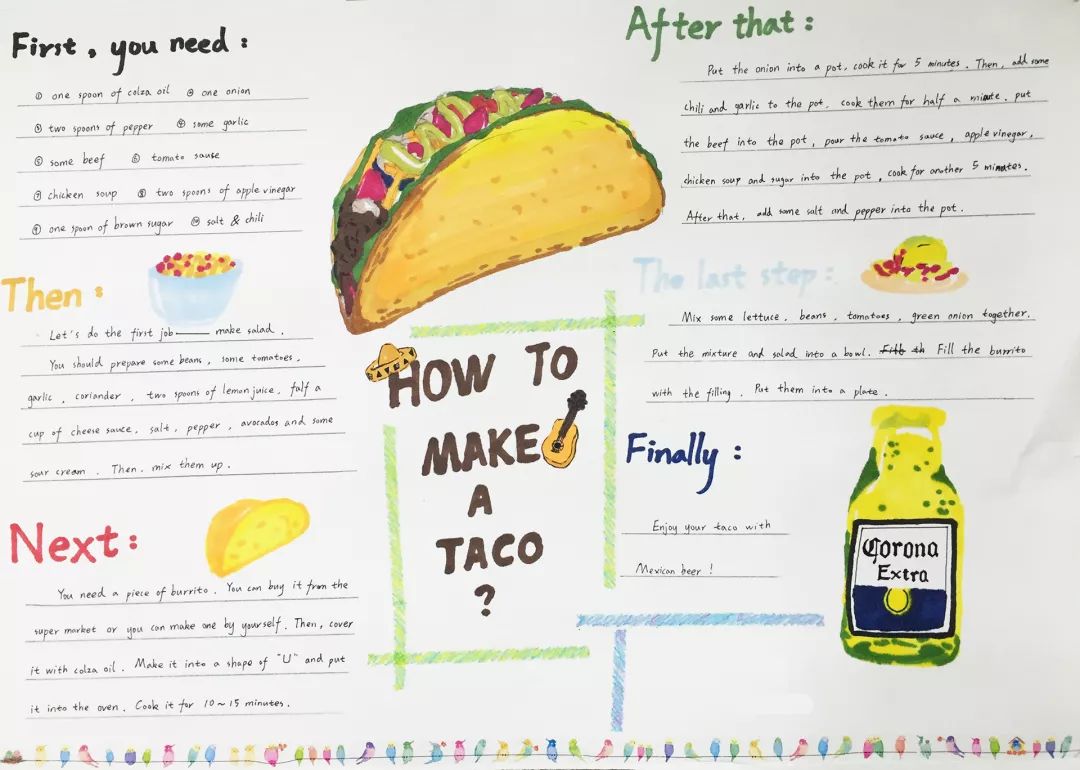 First, you need:
① one spoon of colza oil ② one onion
③ two spoons of pepper ④ some garlic
⑤ some beef ⑥ tomato sause
⑦ chicken soup ⑧ two spoons of apple vinegar
⑨ one spoon of brown sugar ⑩ salt & chili
Then:
Let's do the first job —— make salad.
You should prepare some beans, some tomatoes,
garlic, coriander, two spoons of lemon juice, falf a
cup of cheese sauce, salt, pepper, avocados and some
sour cream. Then, mix them up.
Next:
You need a piece of burrito. You can buy it from the
super market or you can make one by yourself. Then, cover
it with colza oil. Make it into a shape of "U" and put
it into the oven. Cook it for 10~15 minutes.
HOW TO
MAKE
A
TACO
?
After that:
Put the onion into a pot, cook it for 5 minutes. Then, add some
chili and garlic to the pot, cook them for half a minute. put
the beef into the pot, pour the tomato sauce, apple vinegar,
chicken soup and sugar into the pot, cook for another 5 minutes.
After that, add some salt and pepper into the pot.
The last step:
Mix some lettuce, beans, tomatoes, green onion together.
Put the mixture and salad into a bowl. Fill the burrito
with the filling. Put them into a plate.
Finally:
Enjoy your taco with
Mexican beer!
Corona
Extra